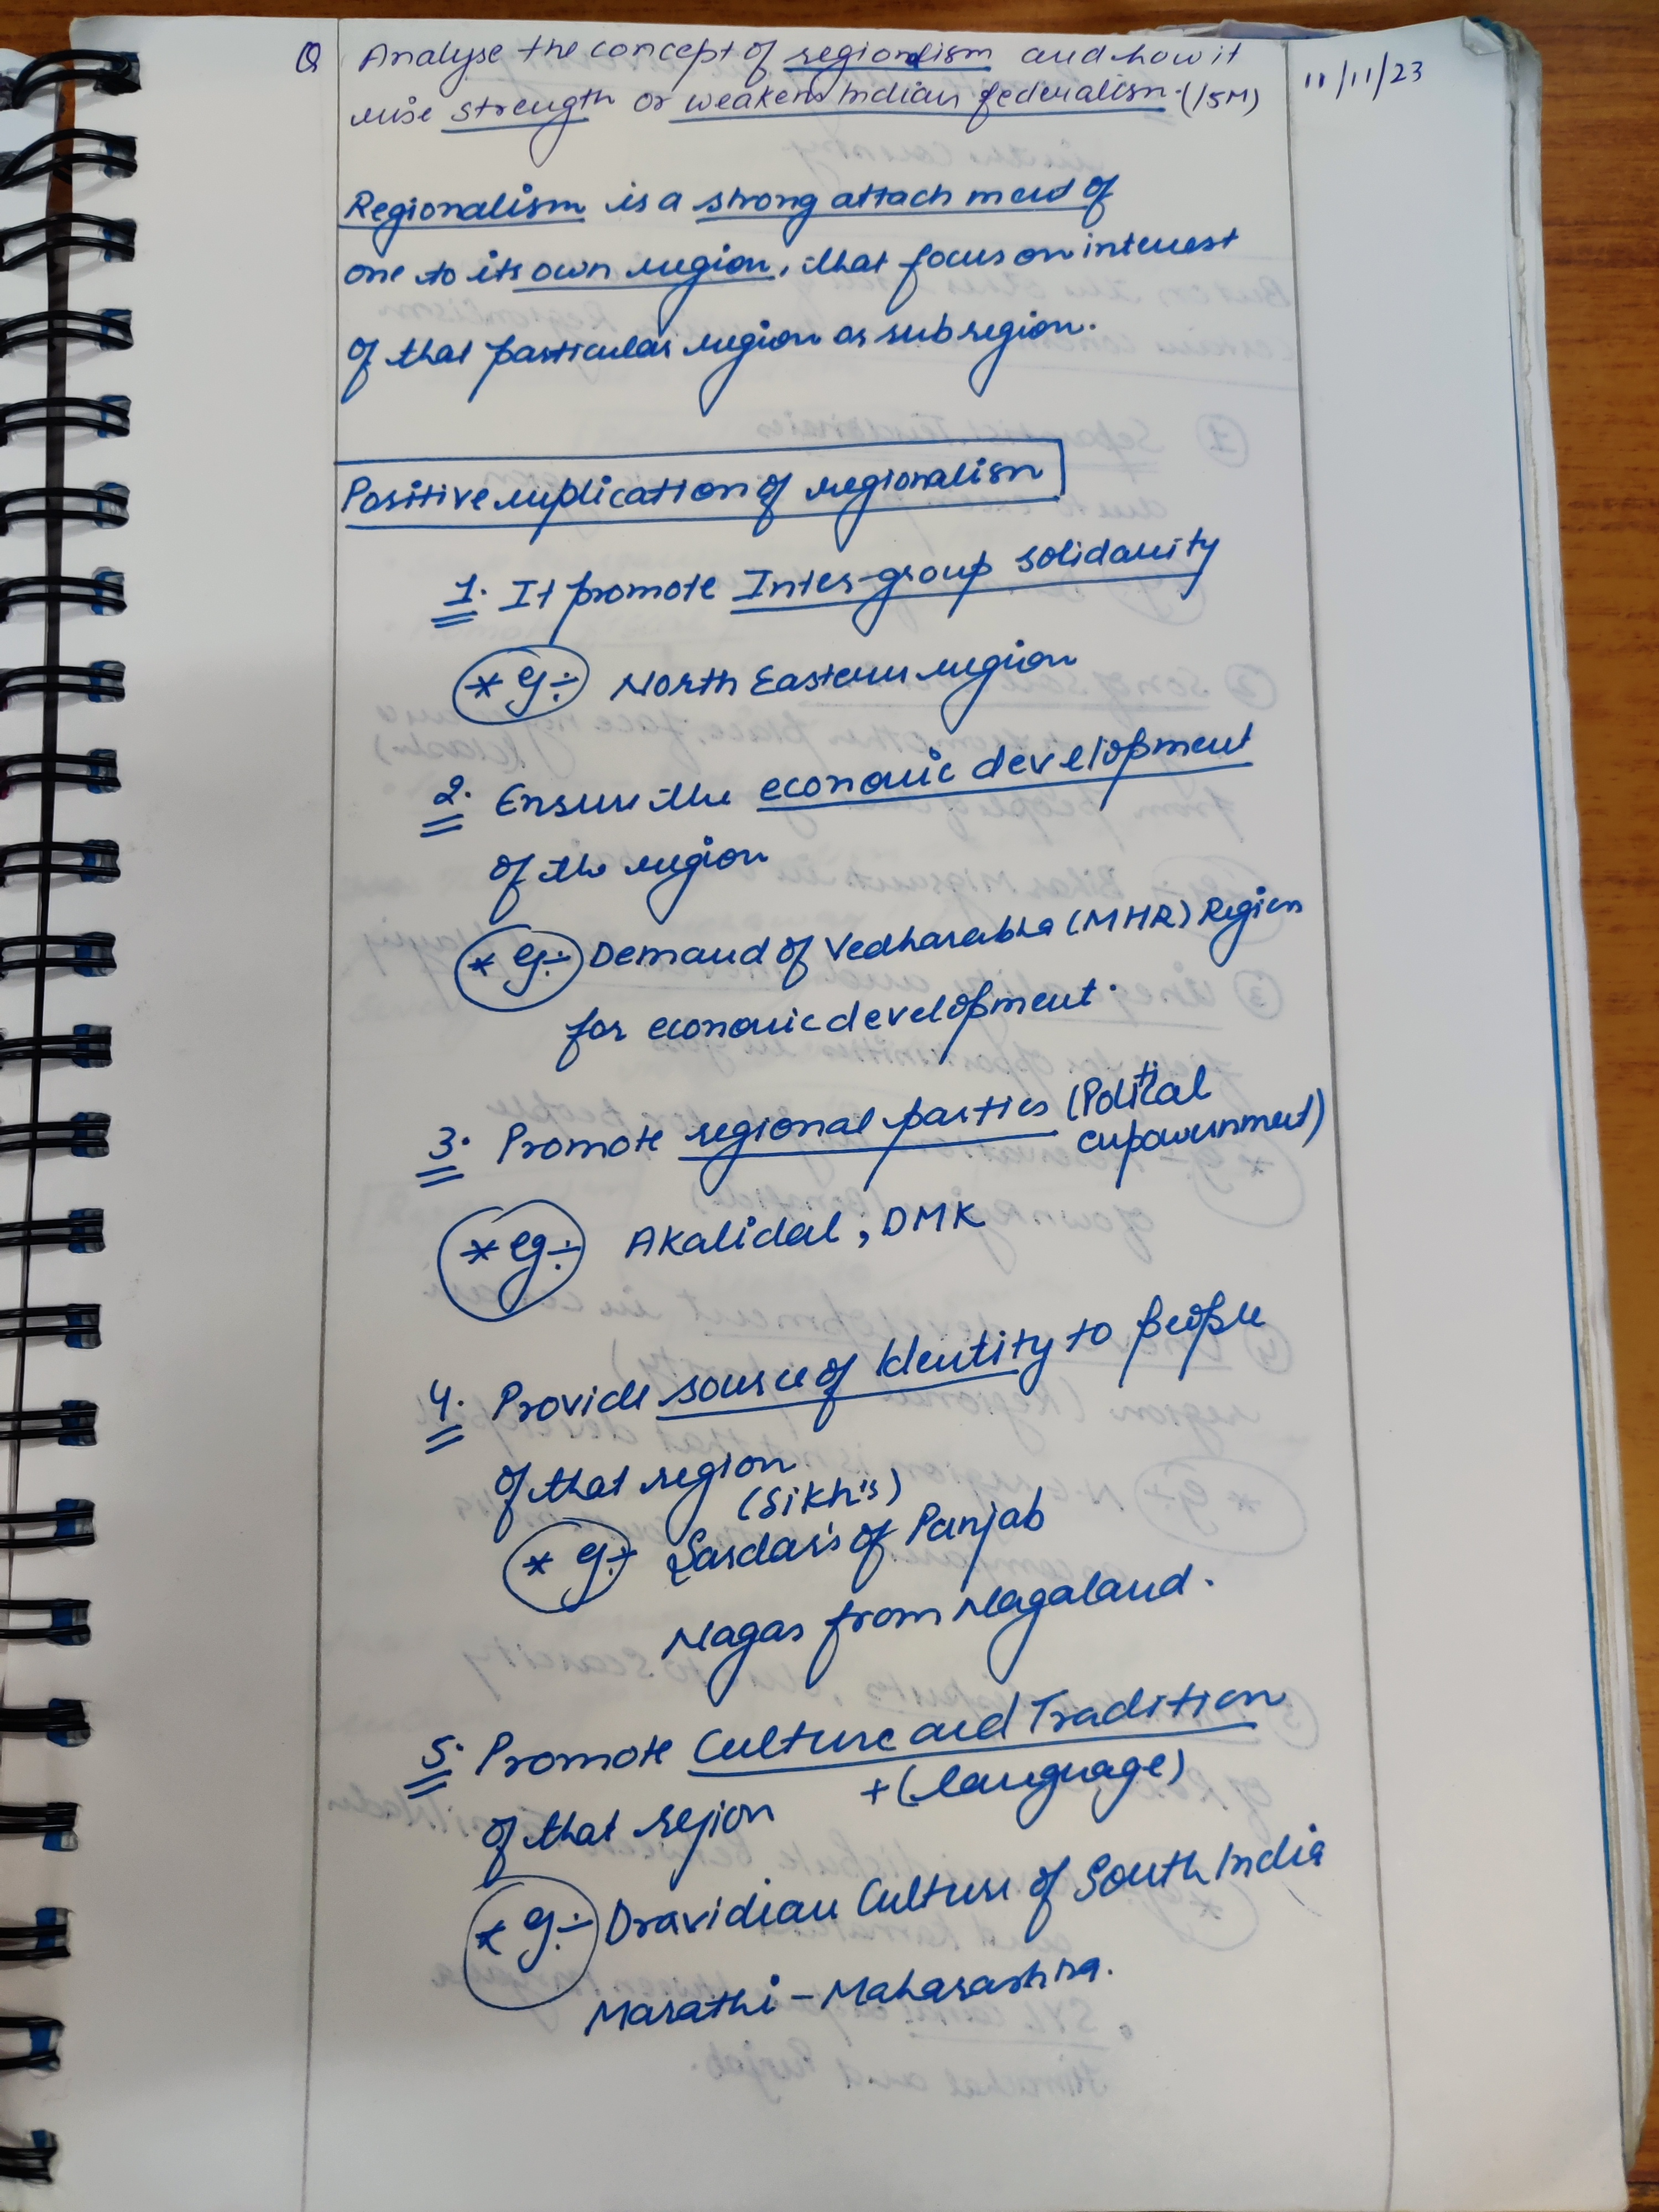 Q Analyse the concept of regionlism and how it
rise strength or weakens Indian federalism. (15M)
11/11/23
Regionalism is a strong attachment of
one to its own region, that focus on interest
of that particular region or subregion.
Positive implication of regionalism
1. It promote Inter-group solidarity
* eg:- North Eastern region
2. Ensure the economic development
of the region
* eg:- Demand of Vedharabha (MHR) Region
for economic development.
3. Promote regional parties (Political
empowernment)
* eg:- Akalidal, DMK
4. Provide source of Identity to people
of that region
(Sikh's)
* eg:- Sardar's of Panjab
Nagas from Nagaland.
5. Promote Culture and Tradition
+ (language)
of that region
* eg:- Dravidian Culture of South India
Marathi - Maharashtra.